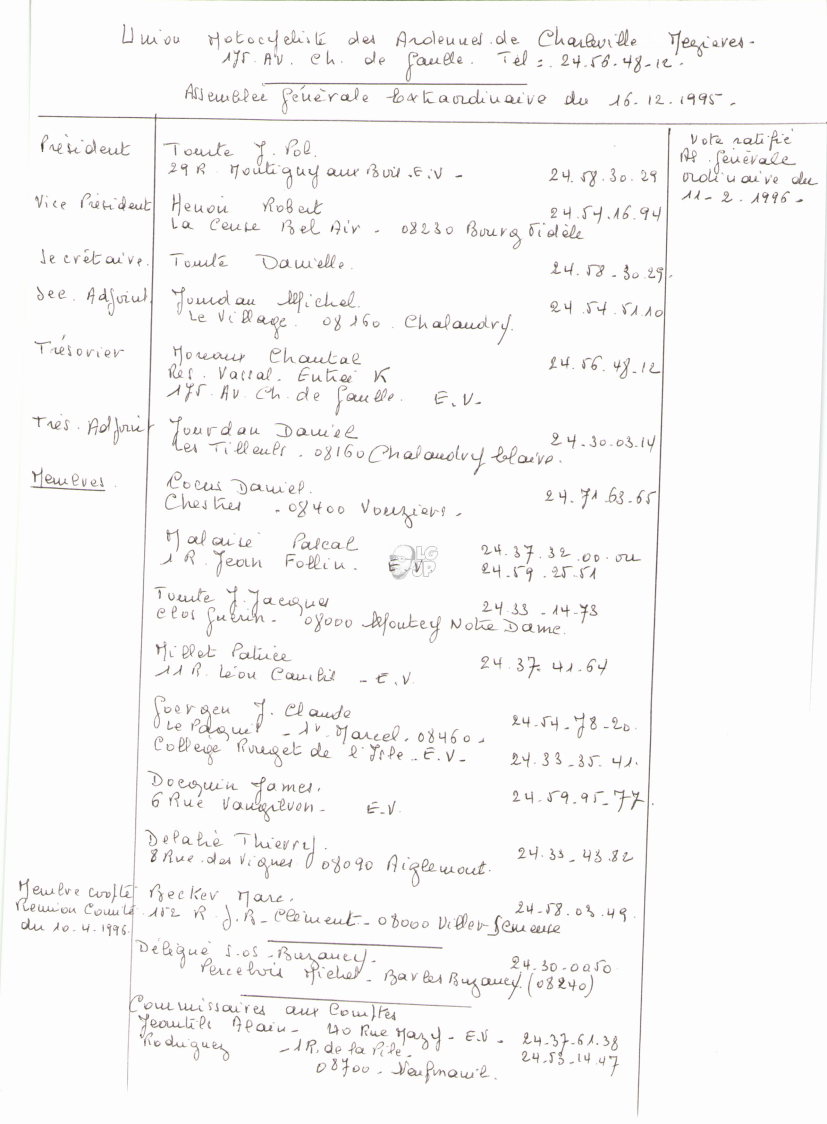 Union Motocycliste des Ardennes de Charleville Mezieres -
175. Av. Ch. de Gaulle. Tél : 24.56.48-12.
Assemblée Générale Extraordinaire du 16.12.1995.
Vote ratifié
As. Générale
ordinaire du
11-2.1996-
Président Toute J. Pol.
29 R. Montigny aux Bois. E.V - 24.58.30.29
Vice Président Henon Robert 24.54.16.94
La Cense Bel Air - 08230 Bourg Fidèle
Secrétaire. Toute Danielle. 24.58-30.29.
Sec. Adjoint Jourdan Michel. 24.54.51.10
Le Village. 08160. Chalandry.
Trésorier Moreaux Chantal 24.56.48.12
Rés. Vassal. Entrée K
175. Av. Ch. de Gaulle. E.V-
Très. Adjoint Jourdan Daniel 24.30.03.14
Les Tilleuls. 08160 Chalandry Elaire.
Membres. Cocus Daniel. 24.71.63.65
Chestres - 08400 Vouziers -
Malaise Pascal 24.37.32.00 ou
1 R. Jean Follin. E.V 24.59.25.51
LG UP
Toute J. Jacques 24.33-14.73
Clos Guérin - 08000 Montcy Notre Dame.
Millet Patrice 24.37.41.64
11 R. Léon - E.V.
Goergen J. Claude 24.54-78-20.
Le Paquis - St. Marcel. 08460 -
College Rouget de l'Isle. E.V- 24.33-35.41.
Docquin James. 24.59.95-77.
6 Rue - E.V.
Delahé Thierry. 24.33-43.82
8 Rue des Vignes 08090 Aiglemont.
Membre coopté Becker Marc. 24-58.03.49.
Reunion Comité 152 R. J.B- Clément - 08000 Viller-Semeuse
du 10.4.1996.
Délégué S.OS - Buzancy. 24.30-0050
Percebois Michel - Bar les Buzancy (08240)
Commissaires aux Comptes
Alain - 40 Rue Mazy - E.V - 24-37-61.38
Rodriguez - 1R. de la Pile - 24.53-14.47
08700 - Neufmanil.